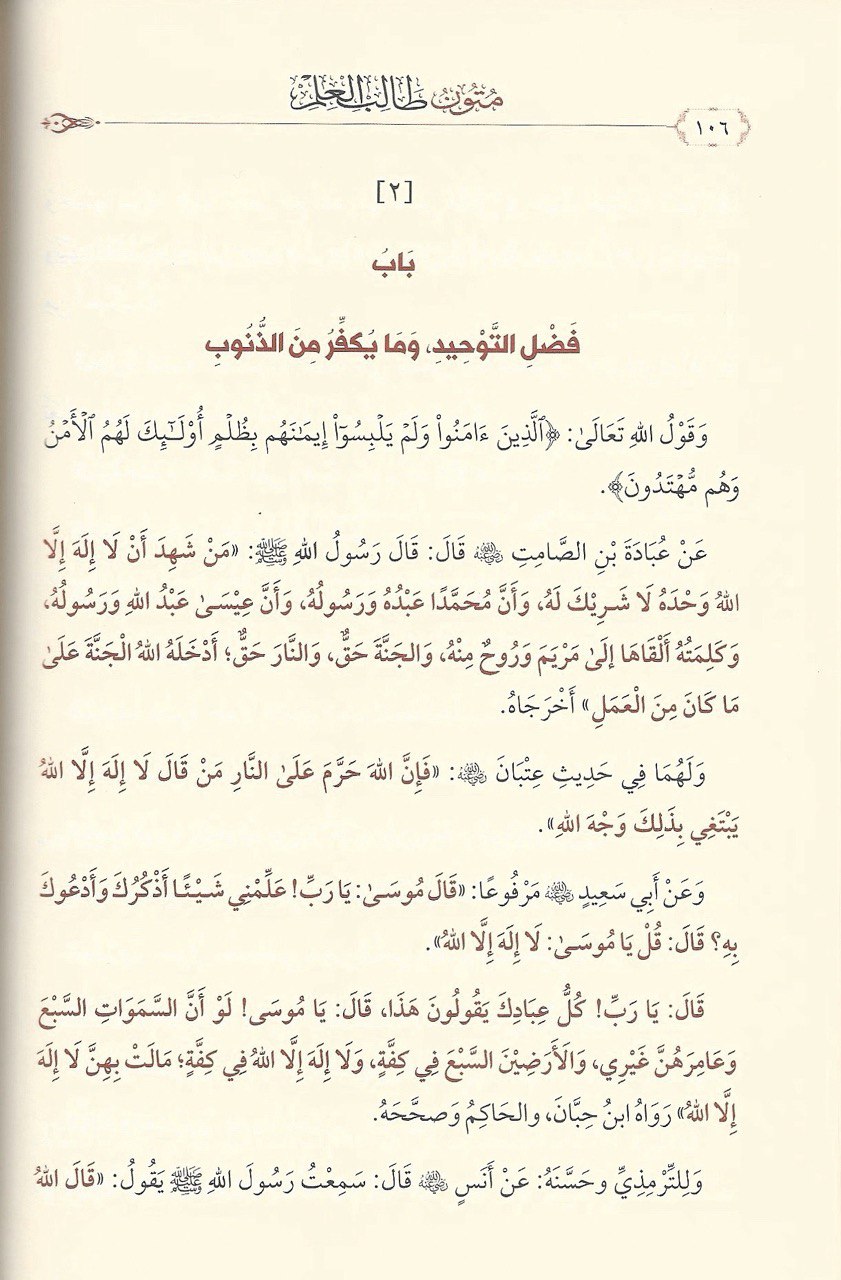 مُتُونُ طَالِبِ الْعِلْمِ
١٠٦
[٢]
بَابُ
فَضْلِ التَّوْحِيدِ، وَمَا يُكَفِّرُ مِنَ الذُّنُوبِ
وَقَوْلُ اللهِ تَعَالَىٰ: ﴿ٱلَّذِينَ ءَامَنُوا۟ وَلَمْ يَلْبِسُوٓا۟ إِيمَـٰنَهُم بِظُلْمٍ أُو۟لَـٰٓئِكَ لَهُمُ ٱلْأَمْنُ
وَهُم مُّهْتَدُونَ﴾.
عَنْ عُبَادَةَ بْنِ الصَّامِتِ رضي الله عنه قَالَ: قَالَ رَسُولُ اللهِ ﷺ: «مَنْ شَهِدَ أَنْ لَا إِلَهَ إِلَّا
اللهُ وَحْدَهُ لَا شَرِيْكَ لَهُ، وَأَنَّ مُحَمَّدًا عَبْدُهُ وَرَسُولُهُ، وَأَنَّ عِيْسَىٰ عَبْدُ اللهِ وَرَسُولُهُ،
وَكَلِمَتُهُ أَلْقَاهَا إِلَىٰ مَرْيَمَ وَرُوحٌ مِنْهُ، وَالجَنَّةَ حَقٌّ، وَالنَّارَ حَقٌّ؛ أَدْخَلَهُ اللهُ الْجَنَّةَ عَلَىٰ
مَا كَانَ مِنَ الْعَمَلِ» أَخْرَجَاهُ.
وَلَهُمَا فِي حَدِيثِ عِتْبَانَ رضي الله عنه: «فَإِنَّ اللهَ حَرَّمَ عَلَىٰ النَّارِ مَنْ قَالَ لَا إِلَهَ إِلَّا اللهُ
يَبْتَغِي بِذَلِكَ وَجْهَ اللهِ».
وَعَنْ أَبِي سَعِيدٍ رضي الله عنه مَرْفُوعًا: «قَالَ مُوسَىٰ: يَا رَبِّ! عَلِّمْنِي شَيْئًا أَذْكُرُكَ وَأَدْعُوكَ
بِهِ؟ قَالَ: قُلْ يَا مُوسَىٰ: لَا إِلَهَ إِلَّا اللهُ».
قَالَ: يَا رَبِّ! كُلُّ عِبَادِكَ يَقُولُونَ هَذَا، قَالَ: يَا مُوسَى! لَوْ أَنَّ السَّمَوَاتِ السَّبْعَ
وَعَامِرَهُنَّ غَيْرِي، وَالأَرَضِيْنَ السَّبْعَ فِي كِفَّةٍ، وَلَا إِلَهَ إِلَّا اللهُ فِي كِفَّةٍ؛ مَالَتْ بِهِنَّ لَا إِلَهَ
إِلَّا اللهُ» رَوَاهُ ابنُ حِبَّانَ، والحَاكِمُ وَصَحَّحَهُ.
وَلِلتِّرْمِذِيِّ وحَسَّنَهُ: عَنْ أَنَسٍ رضي الله عنه قَالَ: سَمِعْتُ رَسُولَ اللهِ ﷺ يَقُولُ: «قَالَ اللهُ